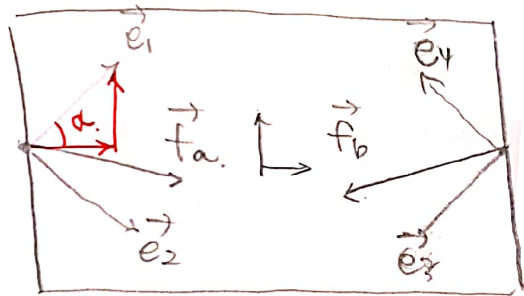 e⃗₁
e⃗₄
α.
f⃗a.
f⃗b
e⃗₂
e⃗₃